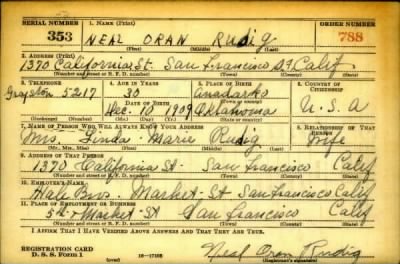 SERIAL NUMBER 1. NAME (Print) ORDER NUMBER
353 NEAL ORAN RUDIG 788
(First) (Middle) (Last)
2. ADDRESS (Print)
1370 California St. San Francisco SF Calif
(Number and street or R. F. D. number) (Town) (County) (State)
3. TELEPHONE 4. AGE IN YEARS 5. PLACE OF BIRTH 6. COUNTRY OF CITIZENSHIP
Grayston 5217 30 Anadarko
DATE OF BIRTH (Town or county)
Dec. 10 1909 Oklahoma U.S.A
(Exchange) (Number) (Mo.) (Day) (Yr.) (State or country)
7. NAME OF PERSON WHO WILL ALWAYS KNOW YOUR ADDRESS 8. RELATIONSHIP OF THAT PERSON
Mrs Marie Rudig Wife
(Mr., Mrs., Miss) (First) (Middle) (Last)
9. ADDRESS OF THAT PERSON
1370 California St San Francisco Calif
(Number and street or R. F. D. number) (Town) (County) (State)
10. EMPLOYER'S NAME
Hale Bros Market St San Francisco Calif
11. PLACE OF EMPLOYMENT OR BUSINESS
5th & Market St San Francisco Calif
(Number and street or R. F. D. number) (Town) (County) (State)
I AFFIRM THAT I HAVE VERIFIED ABOVE ANSWERS AND THAT THEY ARE TRUE.
REGISTRATION CARD
D. S. S. Form 1 (over) Neal Oran Rudig
(Registrant's signature)